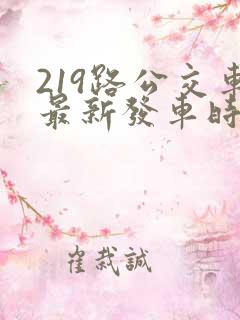 219路公交車
最新發車時
崔栽誠